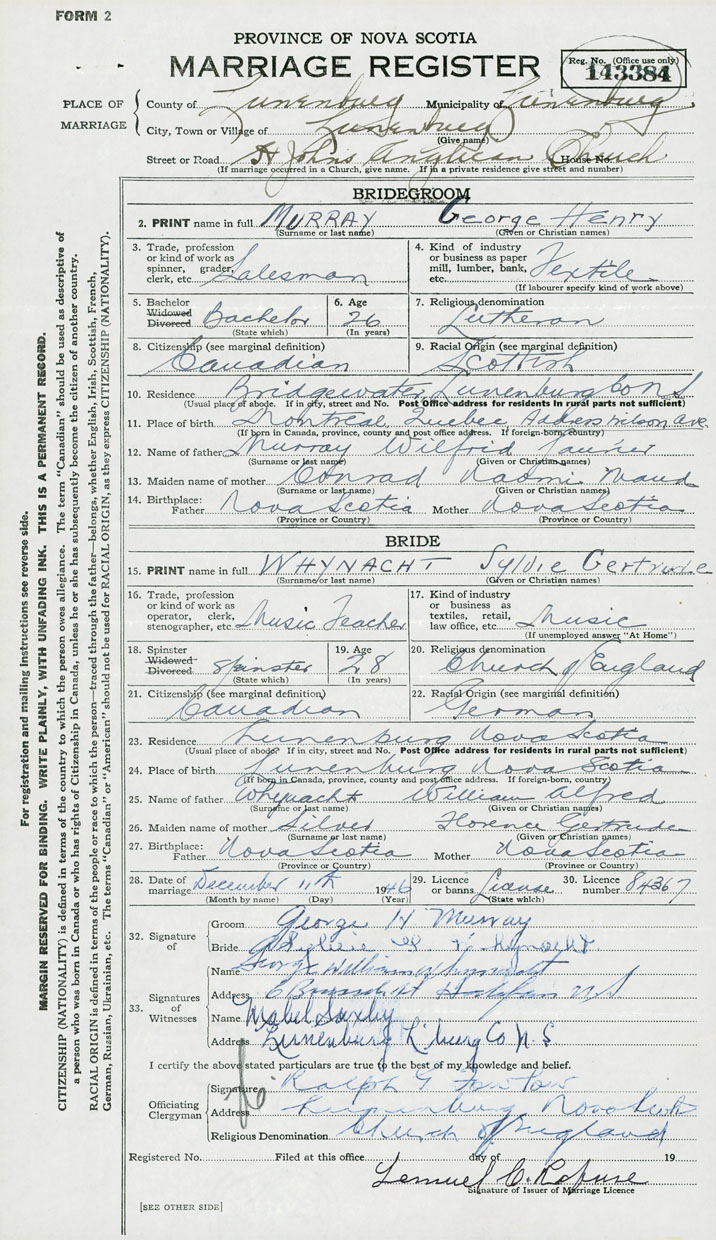 FORM 2
PROVINCE OF NOVA SCOTIA
MARRIAGE REGISTER
Reg. No. (Office use only)
143384
PLACE OF MARRIAGE
County of Lunenburg Municipality of Lunenburg
City, Town or Village of Lunenburg
(Give name)
Street or Road St Johns Anglican Church House No.
(If marriage occurred in a Church, give name. If in a private residence give street and number)
BRIDEGROOM
2. PRINT name in full MURRAY George Henry
(Surname or last name) (Given or Christian names)
3. Trade, profession or kind of work as spinner, grader, clerk, etc. Salesman
4. Kind of industry or business as paper mill, lumber, bank, etc. Textile
(If labourer specify kind of work above)
5. Bachelor Widowed Divorced Bachelor
(State which)
6. Age 26
(In years)
7. Religious denomination Lutheran
8. Citizenship (see marginal definition) Canadian
9. Racial Origin (see marginal definition) Scottish
10. Residence Bridgewater Lunenburg Co N S
(Usual place of abode. If in city, street and No. Post Office address for residents in rural parts not sufficient)
11. Place of birth Montreal Quebec Wilson Ave.
(If born in Canada, province, county and post office address. If foreign-born, country)
12. Name of father Murray Wilfrid
(Surname or last name) (Given or Christian names)
13. Maiden name of mother Conrad Naomi Maud
(Surname or last name) (Given or Christian names)
14. Birthplace: Father Nova Scotia Mother Nova Scotia
(Province or Country) (Province or Country)
BRIDE
15. PRINT name in full WHYNACHT Sylvie Gertrude
(Surname or last name) (Given or Christian names)
16. Trade, profession or kind of work as operator, clerk, stenographer, etc. Music Teacher
17. Kind of industry or business as textiles, retail, law office, etc. Music
(If unemployed answer "At Home")
18. Spinster Widowed Divorced Spinster
(State which)
19. Age 28
(In years)
20. Religious denomination Church of England
21. Citizenship (see marginal definition) Canadian
22. Racial Origin (see marginal definition) German
23. Residence Lunenburg Nova Scotia
(Usual place of abode? If in city, street and No. Post Office address for residents in rural parts not sufficient)
24. Place of birth Lunenburg Nova Scotia
(If born in Canada, province, county and post office address. If foreign-born, country)
25. Name of father Whynacht William Alfred
(Surname or last name) (Given or Christian names)
26. Maiden name of mother Silver Florence Gertrude
(Surname or last name) (Given or Christian names)
27. Birthplace: Father Nova Scotia Mother Nova Scotia
(Province or Country) (Province or Country)
28. Date of marriage December 11th 1946
(Month by name) (Day) (Year)
29. Licence or banns License
(State which)
30. Licence number 84367
32. Signature of
Groom George H Murray
Bride
33. Signatures of Witnesses
Name George William Whynacht
Address Halifax N S
Name Mabel Saxby
Address Lunenburg L'burg Co N. S
I certify the above stated particulars are true to the best of my knowledge and belief.
Officiating Clergyman
Signature Ralph G
Address Lunenburg Nova Scotia
Religious Denomination Church of England
Registered No. Filed at this office day of 19
Lemuel C. Rafuse
Signature of Issuer of Marriage Licence
[SEE OTHER SIDE]
For registration and mailing instructions see reverse side.
MARGIN RESERVED FOR BINDING. WRITE PLAINLY, WITH UNFADING INK. THIS IS A PERMANENT RECORD.
CITIZENSHIP (NATIONALITY) is defined in terms of the country to which the person owes allegiance. The term "Canadian" should be used as descriptive of
a person who was born in Canada or who has rights of Citizenship in Canada, unless he or she has subsequently become the citizen of another country.
RACIAL ORIGIN is defined in terms of the people or race to which the person—traced through the father—belongs, whether English, Irish, Scottish, French,
German, Russian, Ukrainian, etc. The terms "Canadian" or "American" should not be used for RACIAL ORIGIN, as they express CITIZENSHIP (NATIONALITY).